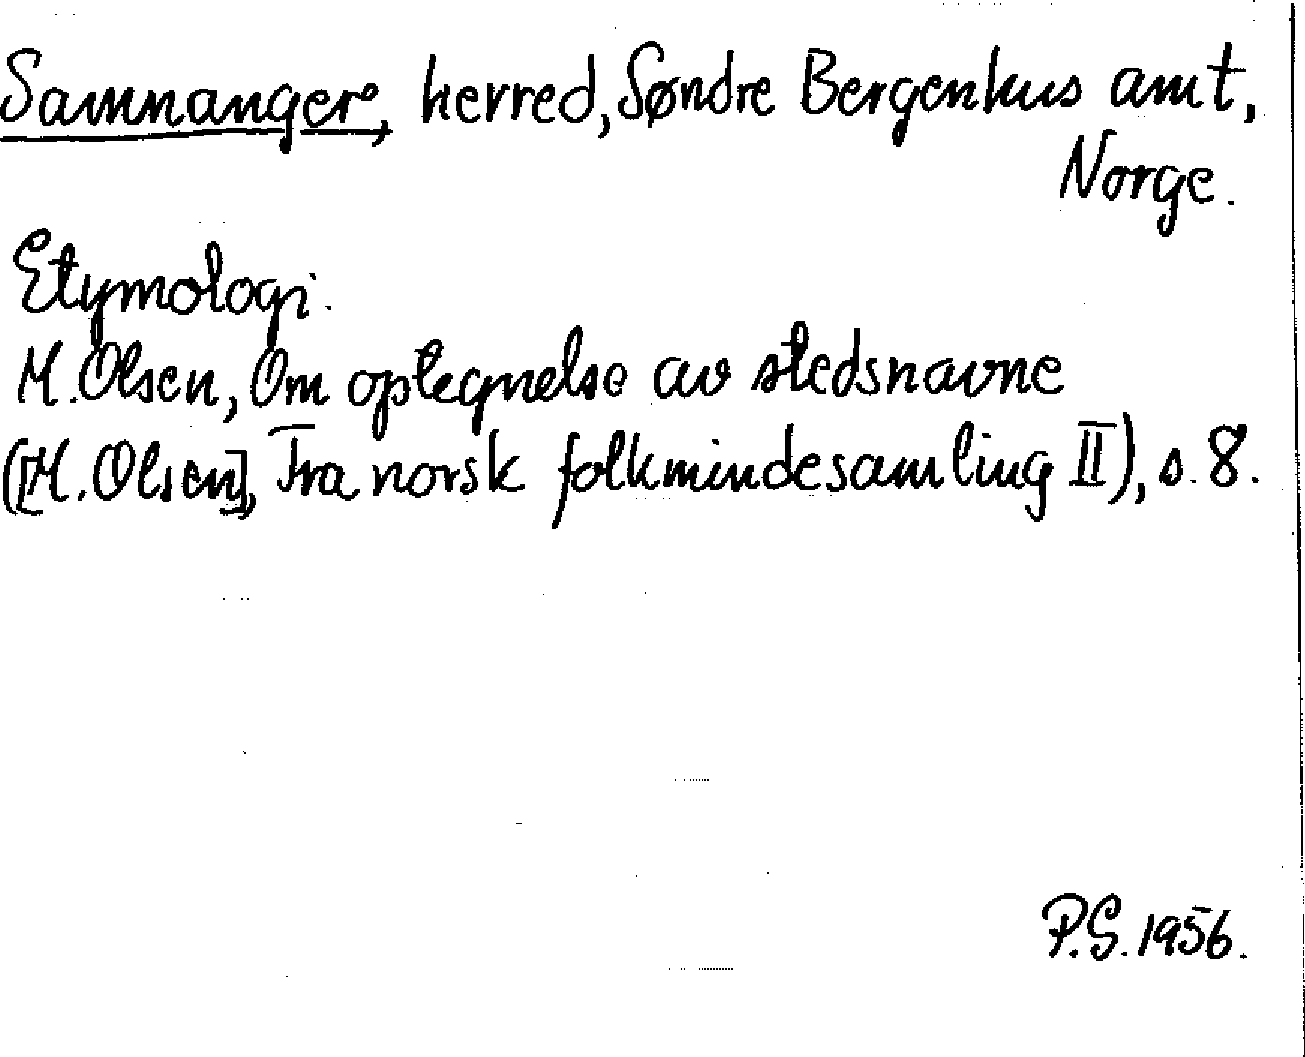 Samnanger, herred, Søndre Bergenhus amt,
Norge.
Etymologi.
M. Olsen, Om optegnelse av stedsnavne
([M. Olsen], Fra norsk folkmindesamling II), s. 8.
P.S. 1956.